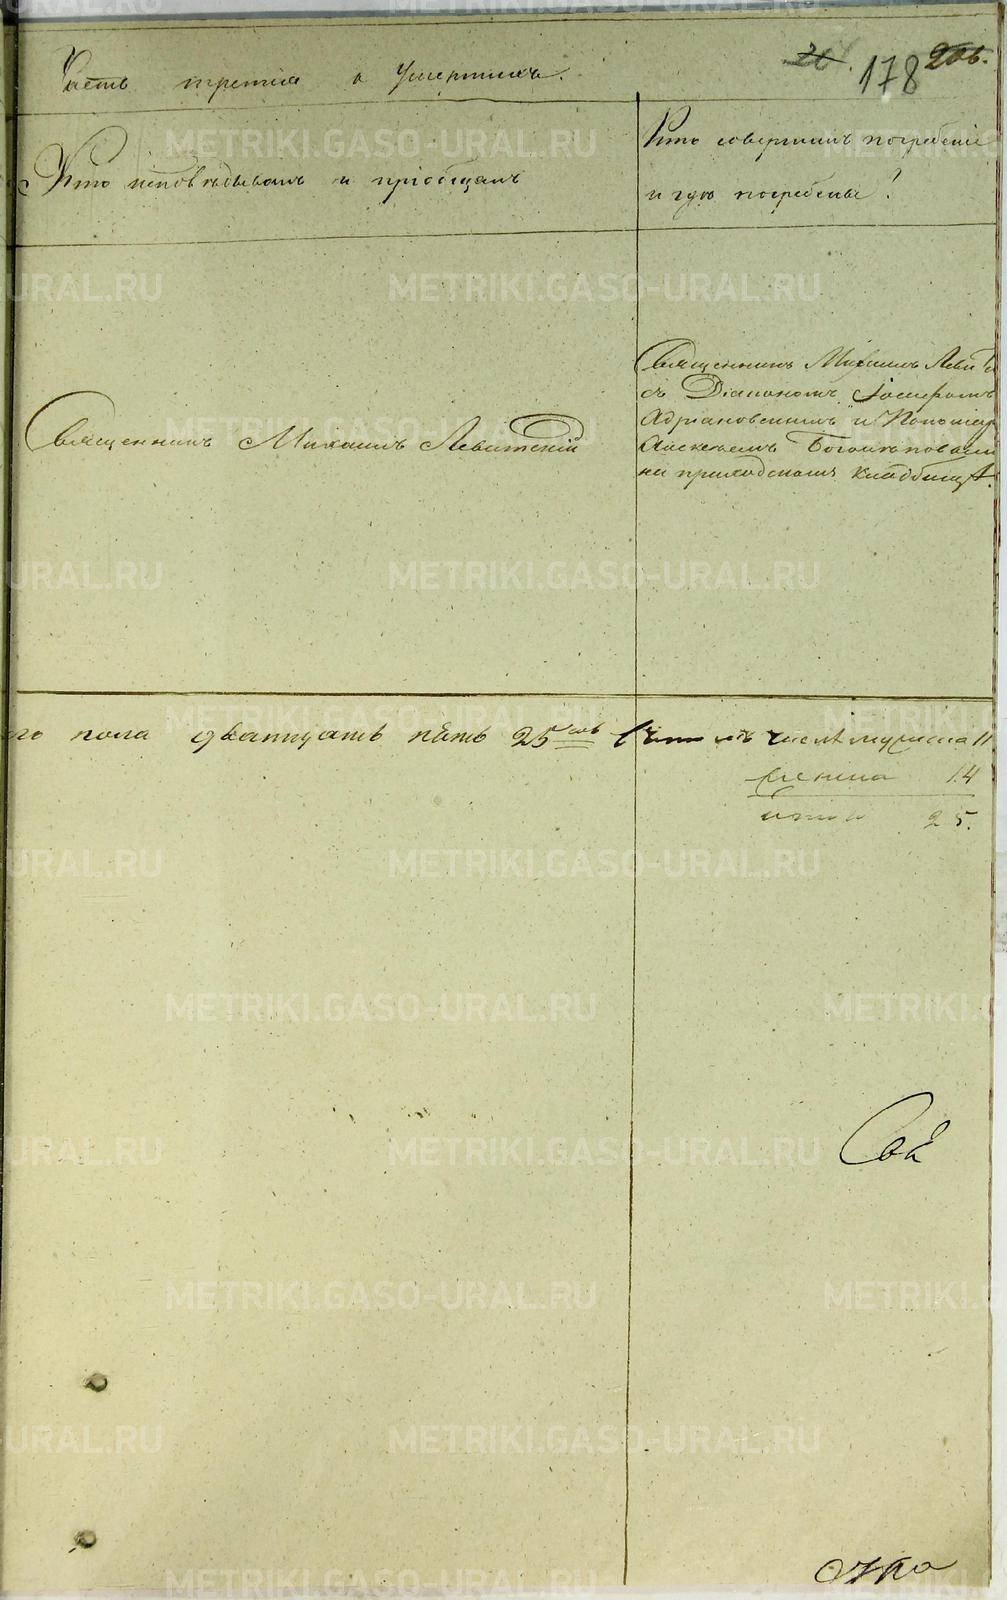 Часть третія о умершихъ.
178
Кто исповѣдывалъ и пріобщалъ
Кто совершалъ погребеніе
и гдѣ погребены?
Священникъ Михаилъ Левитскій
Священникъ Михаилъ Левит
съ Діакономъ Іосифомъ
Адріановскимъ и Пономар
Алексѣемъ Боголѣповым
на приходскомъ кладбищѣ.
го пола дватцать пять 25 въ числѣ мужеска 11
женска 14
итого 25.
METRIKI.GASO-URAL.RU